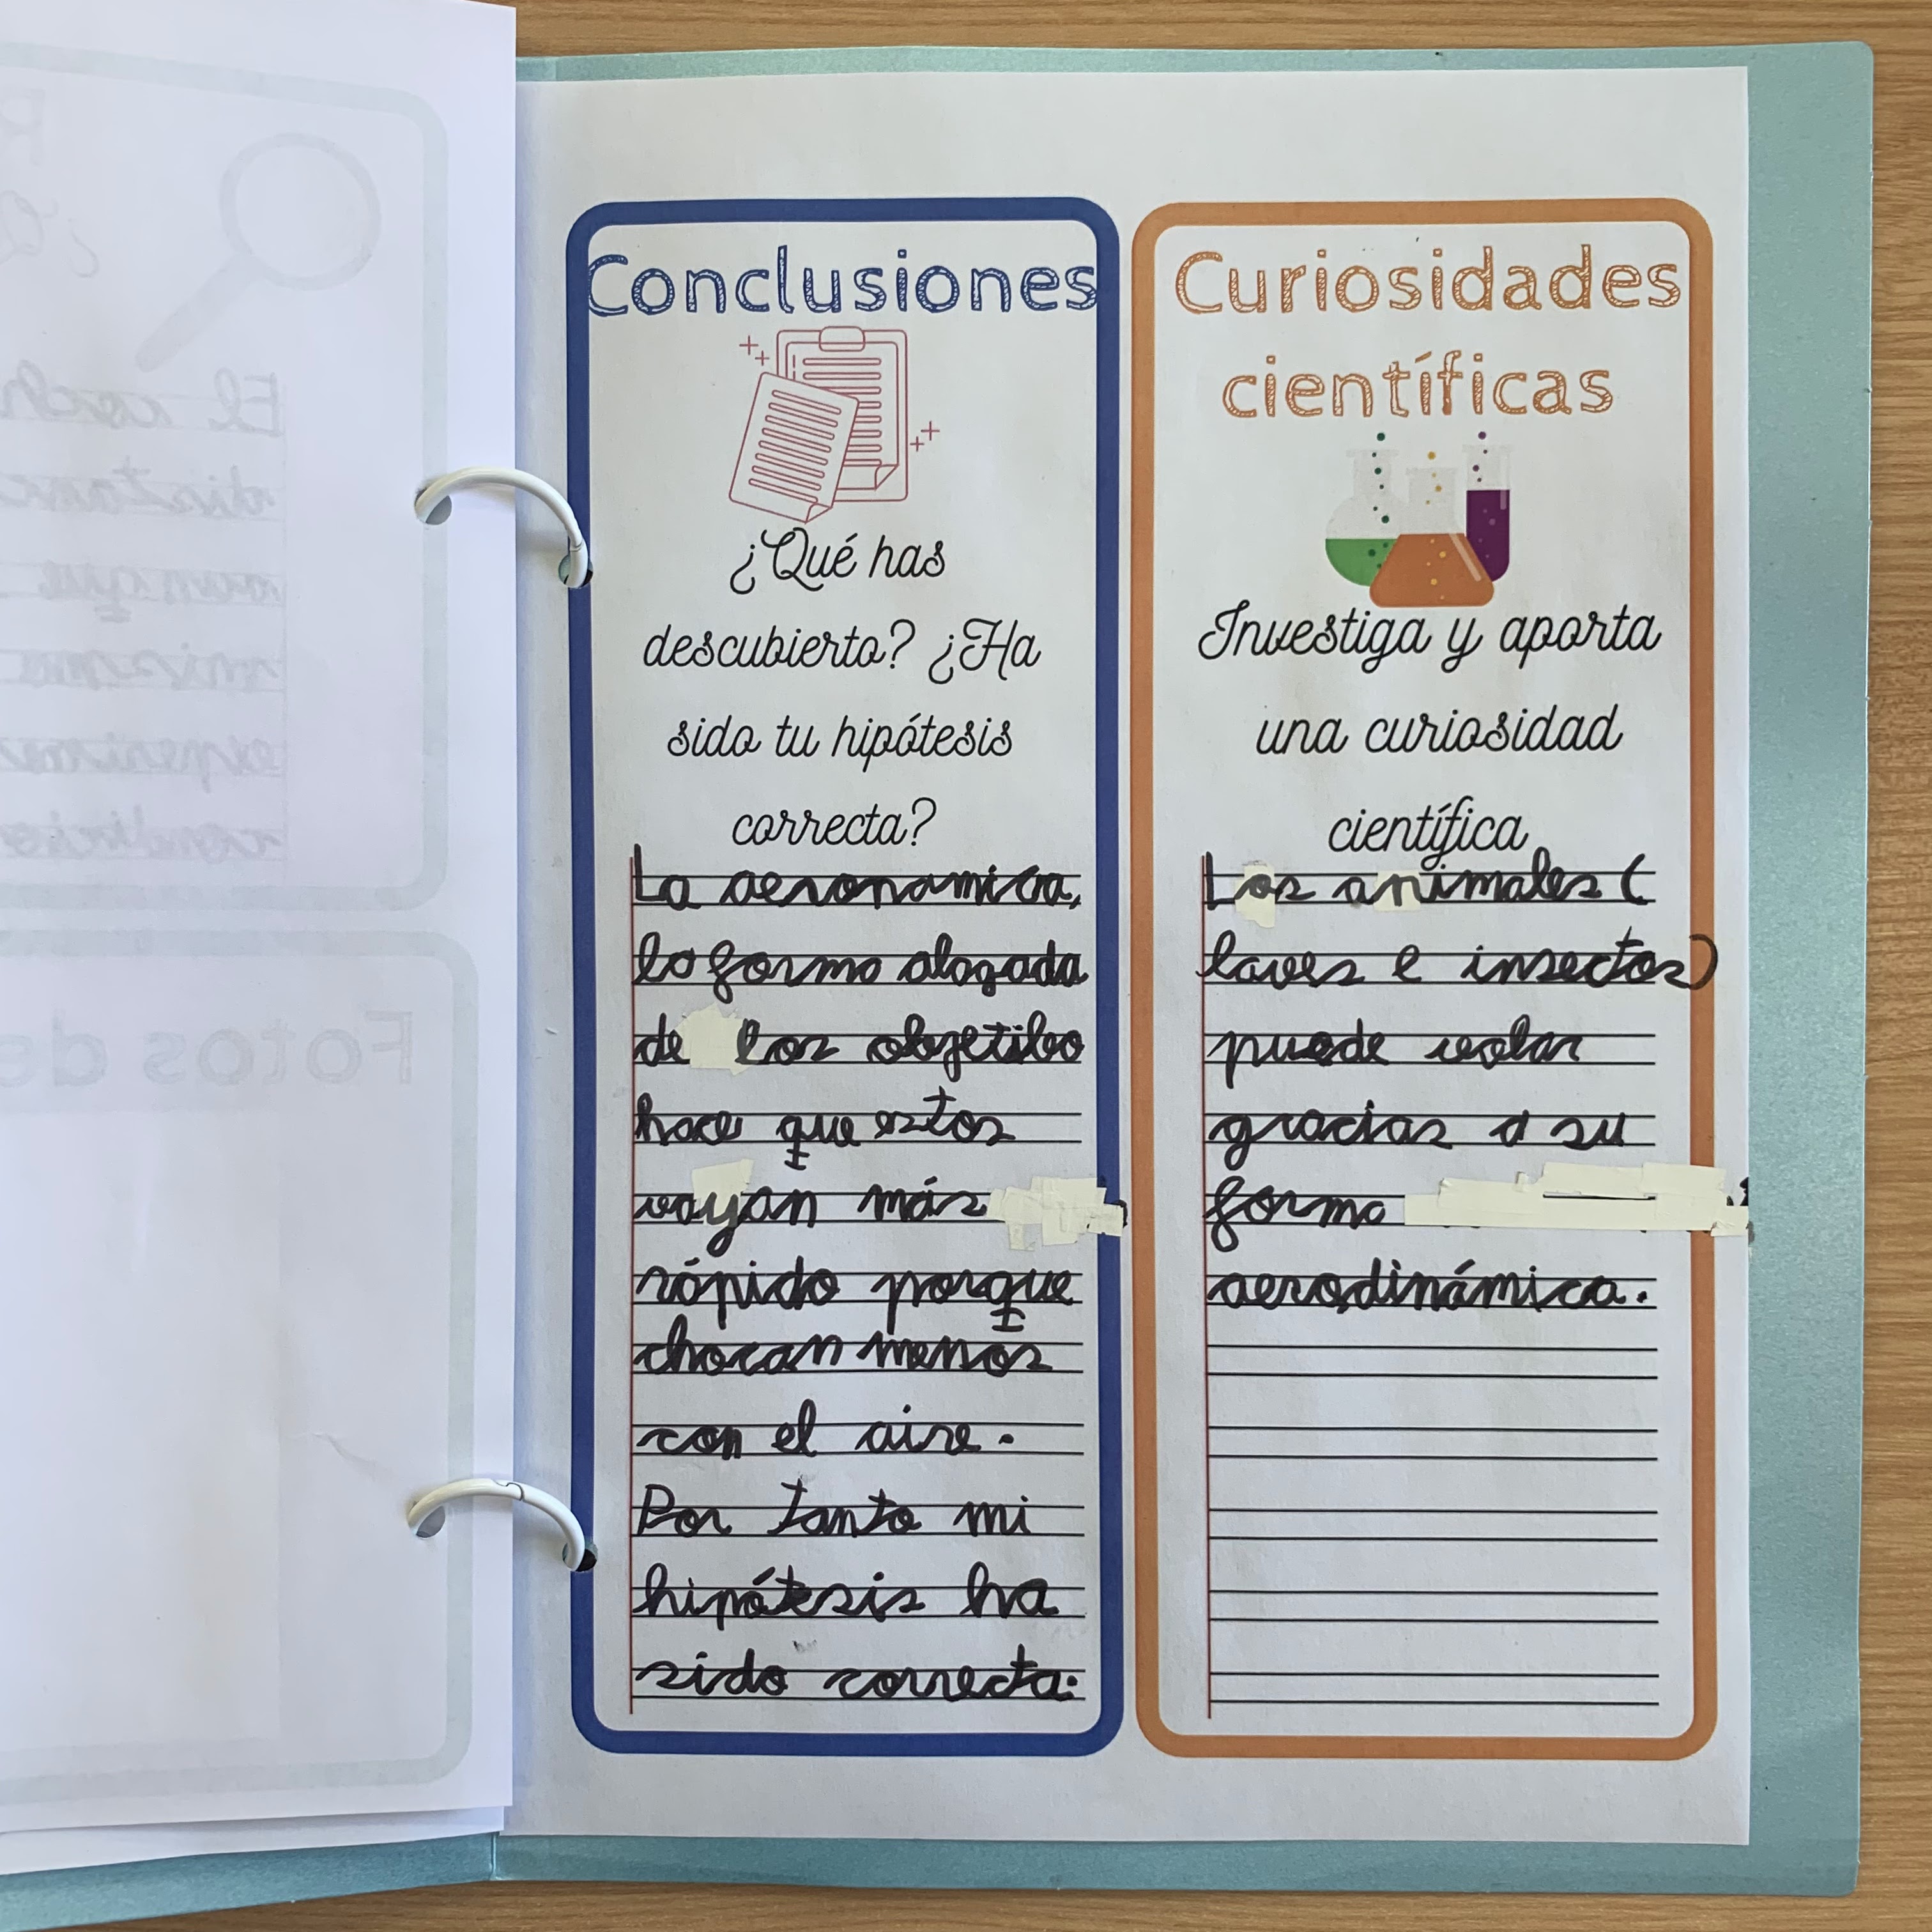 Conclusiones
¿Qué has
descubierto? ¿Ha
sido tu hipótesis
correcta?
La aeronamica,
la forma alagada
de los objetibo
hace que estos
vayan más
rápido porque
chocan menos
con el aire.
Por tanto mi
hipótesis ha
sido correcta.
Curiosidades
científicas
Investiga y aporta
una curiosidad
científica
Los animales (
laves e insectos)
puede volar
gracias a su
forma
aerodinámica.
El coch
distanc
aunque
misma
experime
condicio
Fotos de